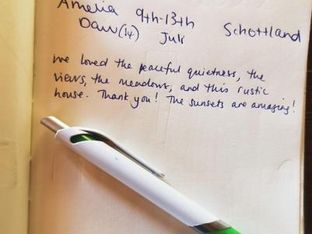 Amelia 9th-13th Schottland
Daw (14) Juli
we loved the peaceful quietness, the
views, the meadows, and this rustic
house. Thank you! The sunsets are amazing!